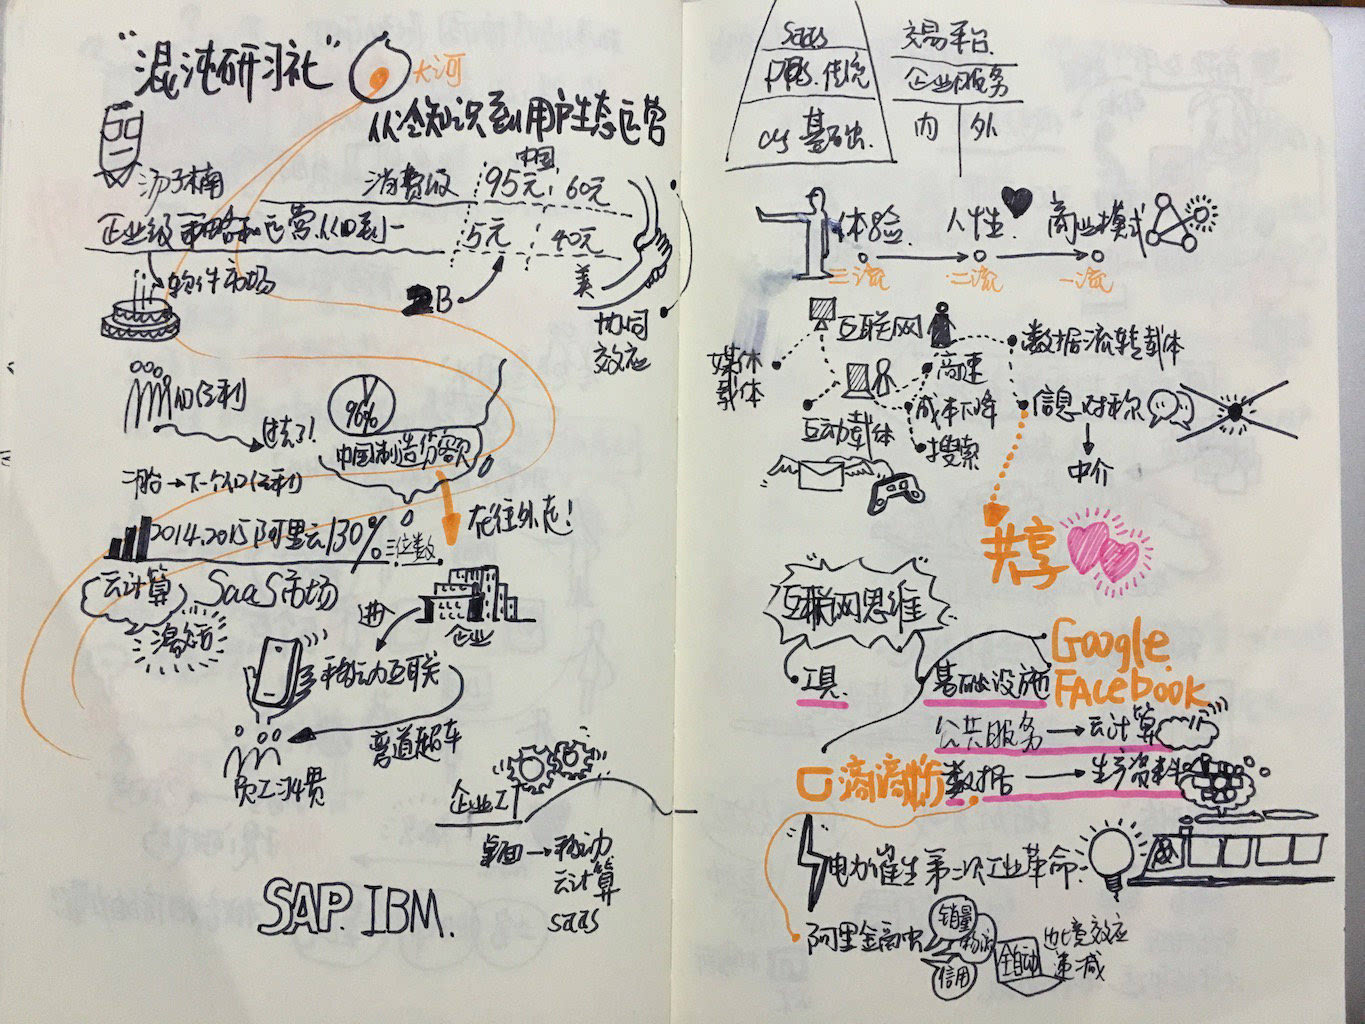 “混沌研习社”
大河
从冷知识到用户生态运营
汤子楠
企业级 策略和运营.从0到一
消费级
中国
95元 60元
5元 40元
美
2B
协同
效应
软件市场
人口红利
过去了!
96%
中国制造份额
二胎→下个人口红利
在往外走!
2014.2015阿里云130%
三位数
云计算
SaaS市场
企业
进
移动互联
弯道超车
员工习惯
企业工
桌面→移动
云计算
SaaS
SAP. IBM.
SaaS
PaaS.传统
基础.
交易平台
企业服务
内 外
体验. 人性. 商业模式
三流 二流 一流
互联网
媒体
载体
互动载体
高速
成本下降
搜索
数据流转载体
信息对称
中介
共享
互联网思维
工具.
基础设施
Google.
FAcebook
公共服务→云计算
口滴滴
数据→生产资料
电力催生第二次工业革命.
阿里金融
销量
信用
全自动
边境效应
递减